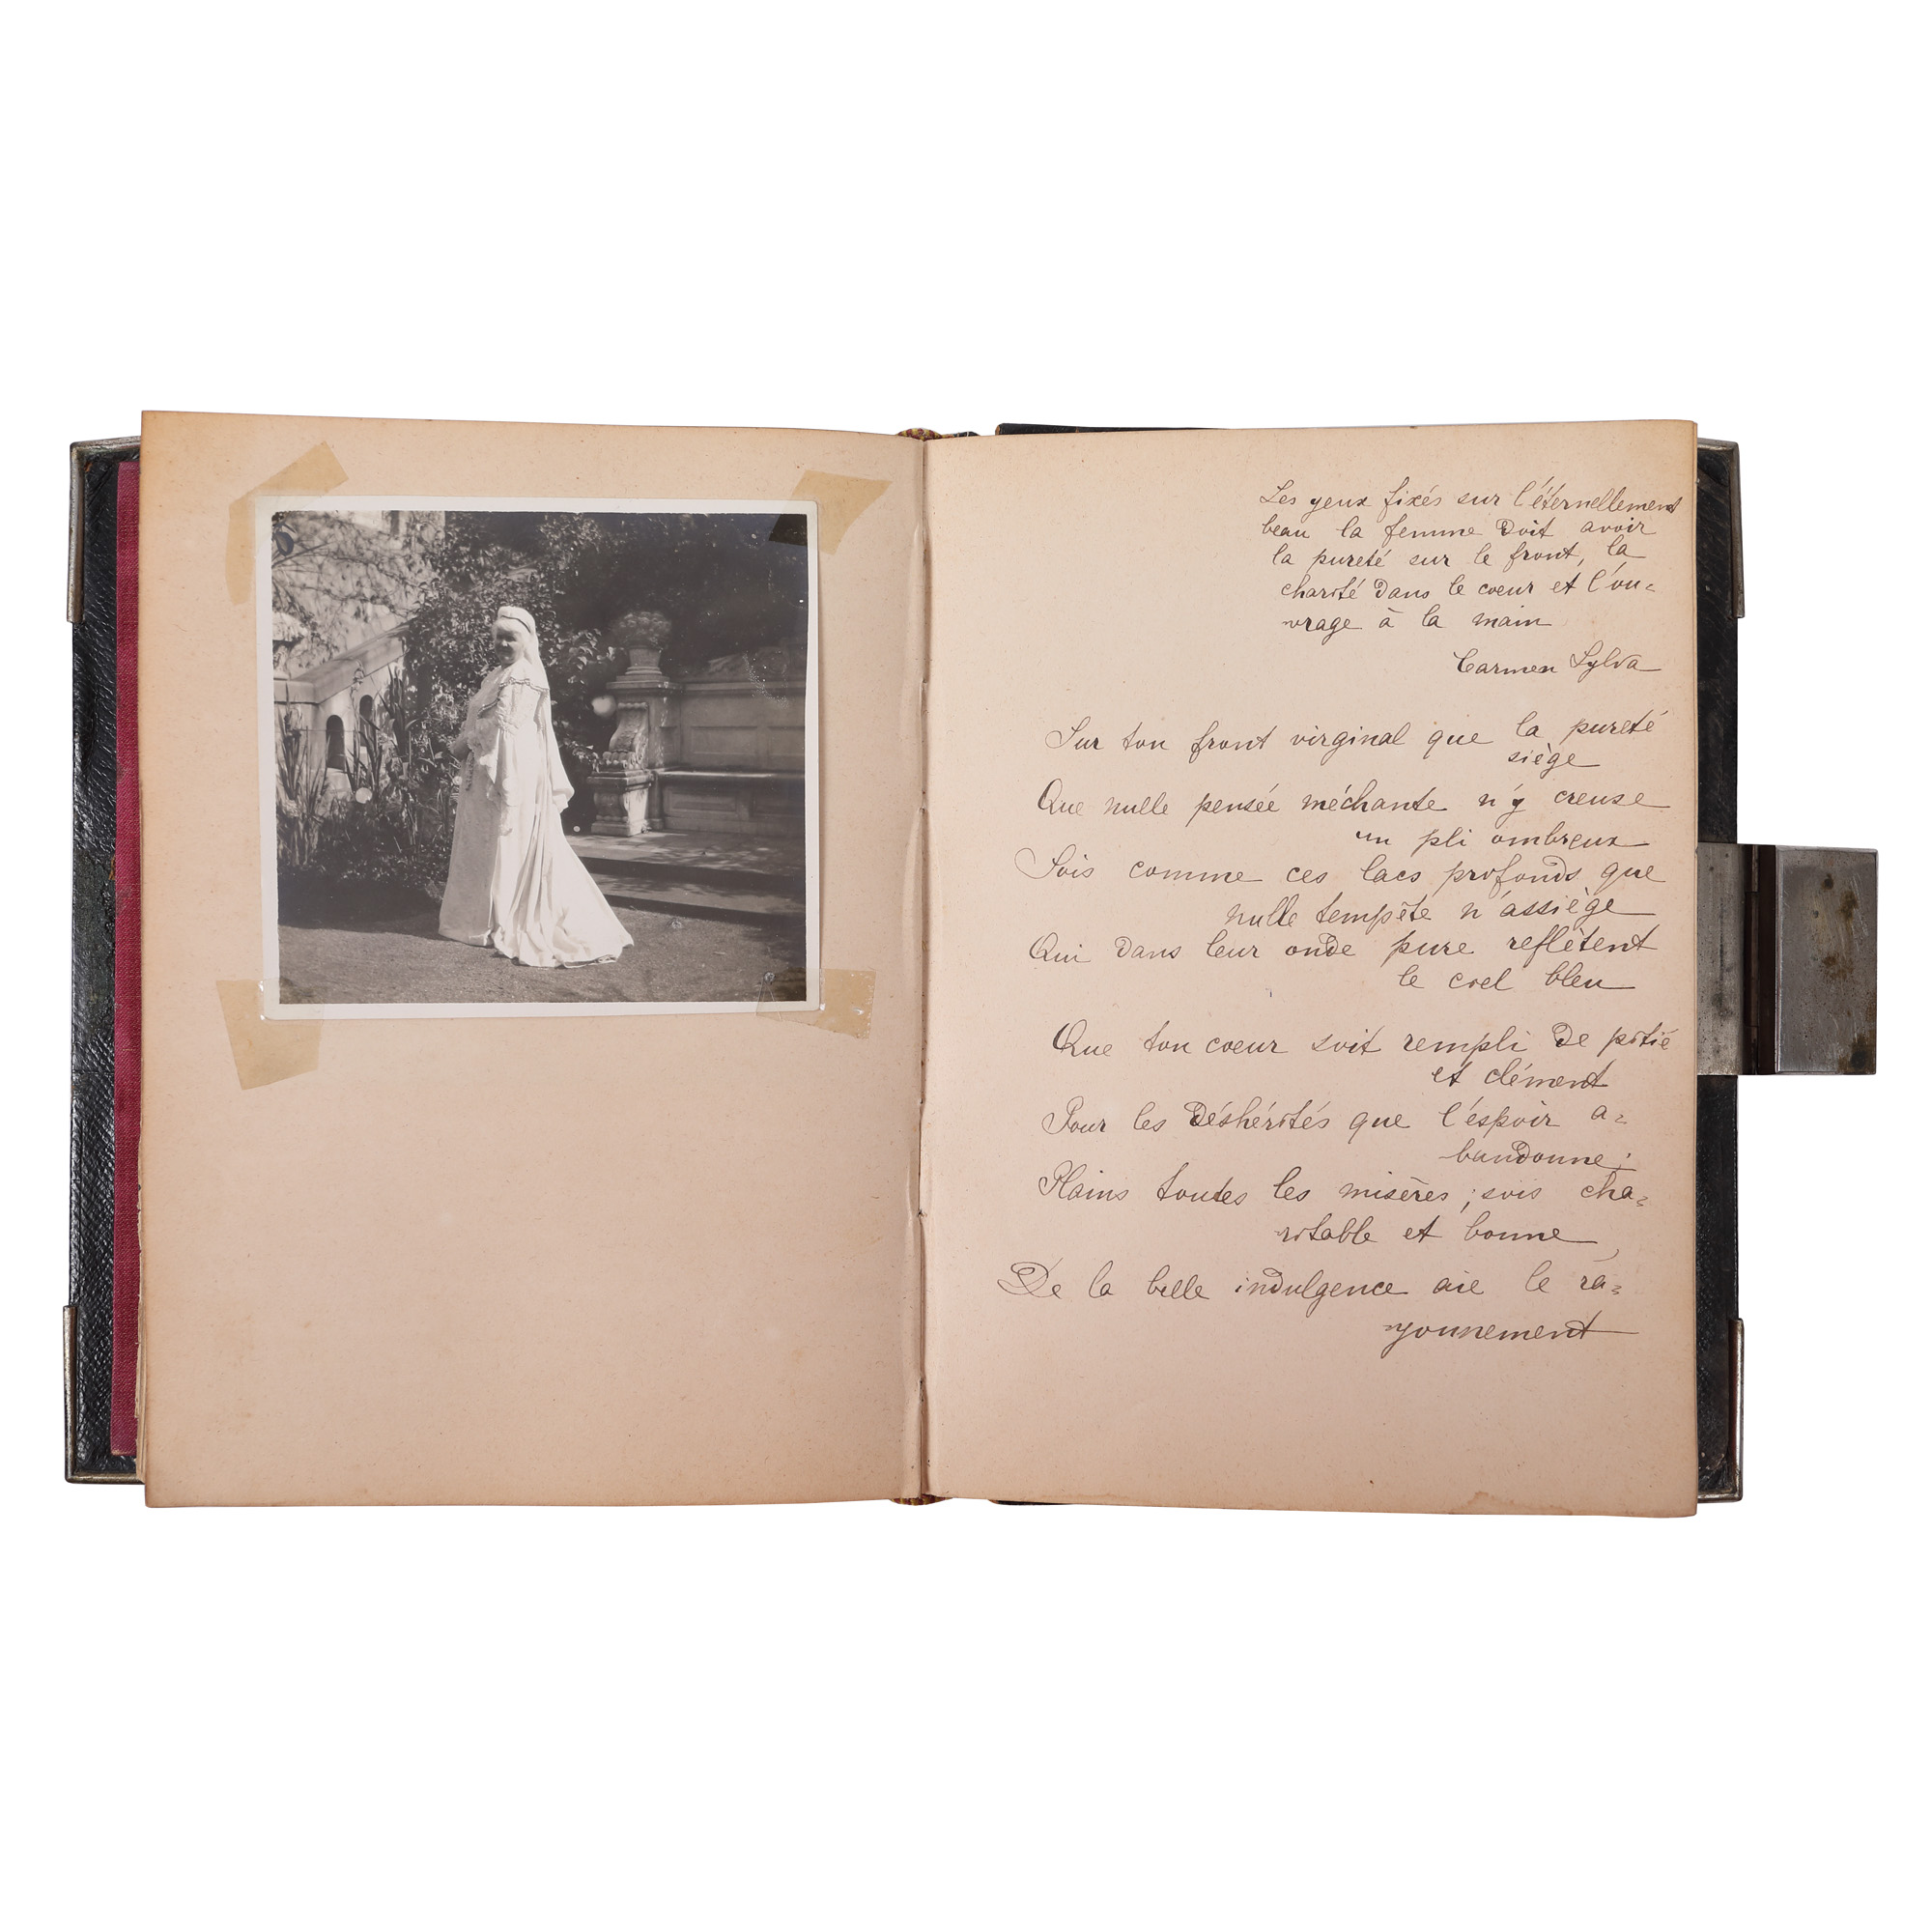 Les yeux fixés sur l'éternellement
beau la femme doit avoir
la pureté sur le front, la
charité dans le coeur et l'ou=
vrage à la main
Carmen Sylva
Sur ton front virginal que la pureté
siège
Que nulle pensée méchante n'y creuse
un pli ombreux
Sois comme ces lacs profonds que
nulle tempête n'assiège
Qui dans leur onde pure reflètent
le ciel bleu
Que ton coeur soit rempli de pitié
et clément
Pour les déshérités que l'espoir a=
bandonne;
Plains toutes les misères; sois cha=
ritable et bonne,
De la belle indulgence aie le ra=
yonnement